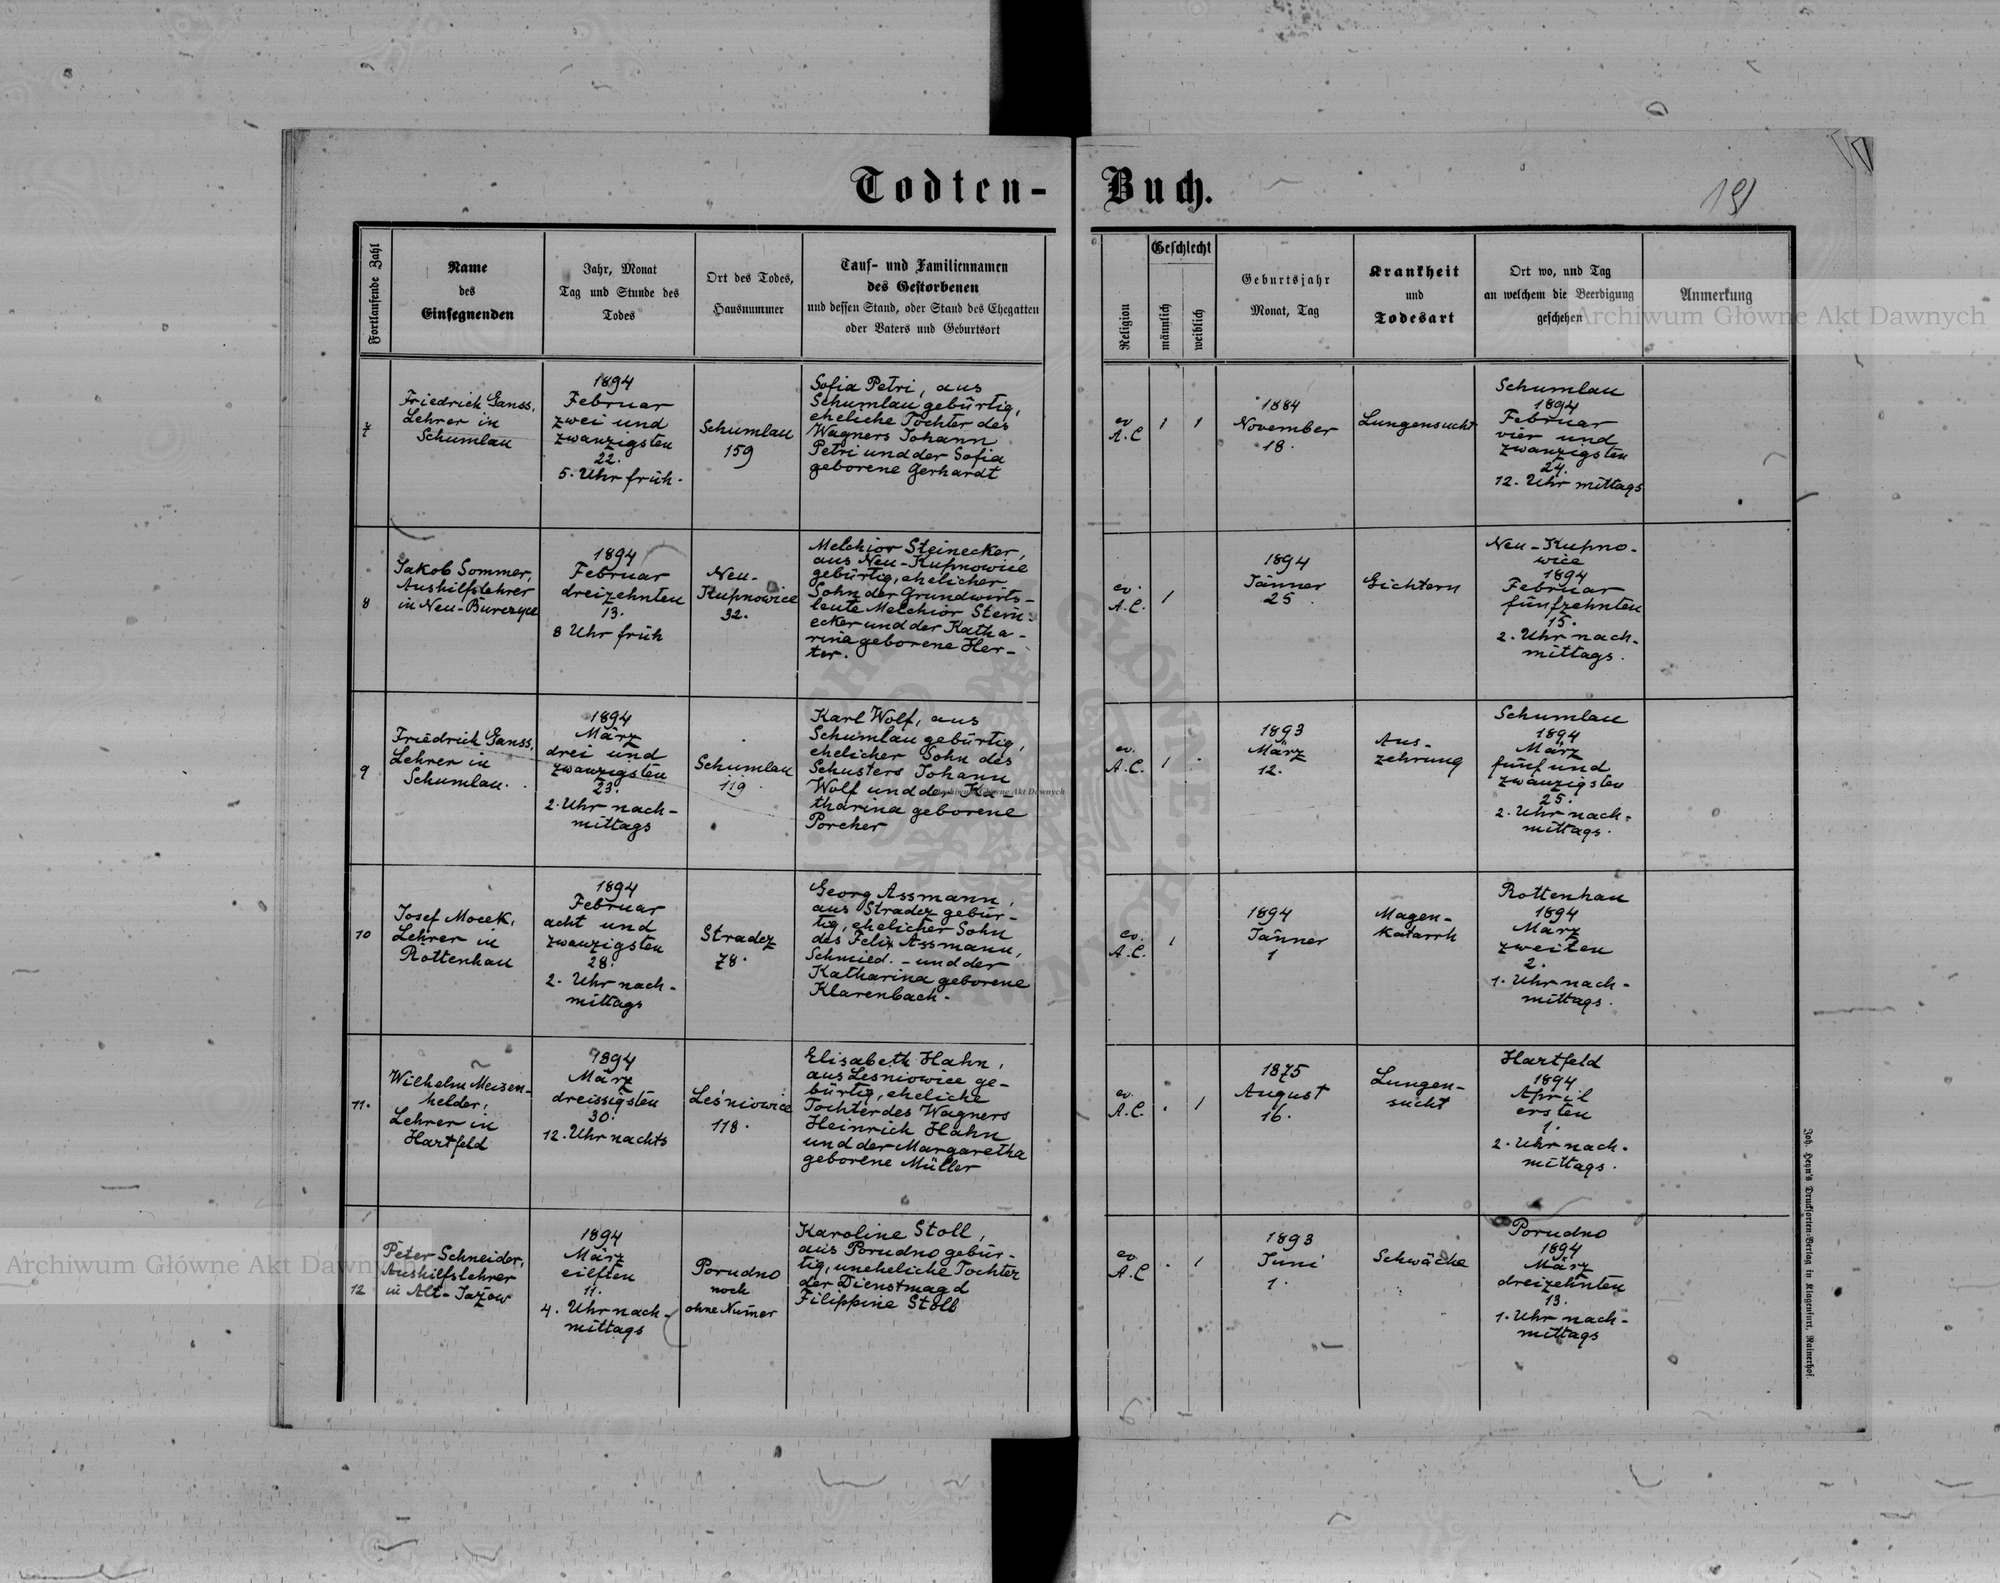 Todten-Buch.
191
Fortlaufende Zahl
Name
des
Einsegnenden
Jahr, Monat
Tag und Stunde des
Todes
Ort des Todes,
Hausnummer
Tauf- und Familiennamen
des Gestorbenen
und dessen Stand, oder Stand des Ehegatten
oder Vaters und Geburtsort
Religion
Geschlecht
männlich
weiblich
Geburtsjahr
Monat, Tag
Krankheit
und
Todesart
Ort wo, und Tag
an welchem die Beerdigung
geschehen
Anmerkung
Archiwum Główne Akt Dawnych
7
Friedrich Ganss,
Lehrer in
Schumlau
1894
Februar
zwei und
zwanzigsten
22.
5. Uhr früh.
Schumlau
159
Sofia Petri, aus
Schumlau gebürtig,
eheliche Tochter des
Wagners Johann
Petri und der Sofia
geborene Gerhardt
ev.
A.C
1
1
1884
November
18.
Lungensucht
Schumlau
1894
Februar
vier und
zwanzigsten
24.
12. Uhr mittags
8
Jakob Sommer,
Aushilfslehrer
in Neu-Burczyce
1894
Februar
dreizehnten
13.
8 Uhr früh
Neu-
Kupnowice
32.
Melchior Steinecker,
aus Neu-Kupnowice
gebürtig, ehelicher
Sohn der Grundwirts-
leute Melchior Stein-
ecker und der Katha-
rina geborene Her-
ter.
ev.
A.C.
1
1894
Jänner
25
Gichtern
Neu-Kupno-
wice
1894
Februar
fünfzehnten
15.
2. Uhr nach-
mittags.
9
Friedrich Ganss,
Lehrer in
Schumlau.
1894
März
drei und
zwanzigsten
23.
2. Uhr nach-
mittags
Schumlau
119
Karl Wolf, aus
Schumlau gebürtig,
ehelicher Sohn des
Schusters Johann
Wolf und der Ka-
tharina geborene
Porcher
ev.
A.C.
1
1893
März
12.
Aus-
zehrung
Schumlau
1894
März
fünf und
zwanzigsten
25.
2. Uhr nach-
mittags.
10
Josef Mocek,
Lehrer in
Rottenhau
1894
Februar
acht und
zwanzigsten
28.
2. Uhr nach-
mittags
Stradcz
78.
Georg Assmann,
aus Stradcz gebür-
tig, ehelicher Sohn
des Felix Assmann,
Schmied. - und der
Katharina geborene
Klarenbach.
ev.
A.C.
1
1894
Jänner
1
Magen-
Katarrh
Rottenhau
1894
März
zweiten
2.
1. Uhr nach-
mittags.
11.
Wilhelm Meisen-
helder,
Lehrer in
Hartfeld
1894
März
dreissigsten
30.
12. Uhr nachts
Leśniowice
118.
Elisabeth Hahn,
aus Leśniowice ge-
bürtig, eheliche
Tochter des Wagners
Heinrich Hahn
und der Margaretha
geborene Müller
ev.
A.C.
1
1875
August
16.
Lungen-
sucht
Hartfeld
1894
April
ersten
1.
2. Uhr nach-
mittags.
12
Peter Schneider,
Aushilfslehrer
in Alt-Jażow
1894
März
eilften
11.
4. Uhr nach-
mittags
Porudno
noch
ohne Numer
Karoline Stoll,
aus Porudno gebür-
tig, uneheliche Tochter
der Dienstmagd
Filippine Stoll
ev.
A.C
1
1893
Juni
1.
Schwäche
Porudno
1894
März
dreizehnten
13.
1. Uhr nach-
mittags
Archiwum Główne Akt Dawnych
Archiwum Główne Akt Dawnych
Joh. Heyn's Drucksorten-Verlag in Klagenfurt, Rainerhof.